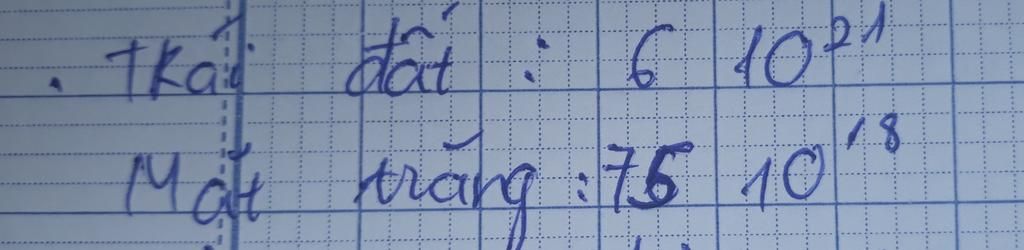 . Trái đất : 6 10²¹
Mặt trăng : 75 10¹⁸